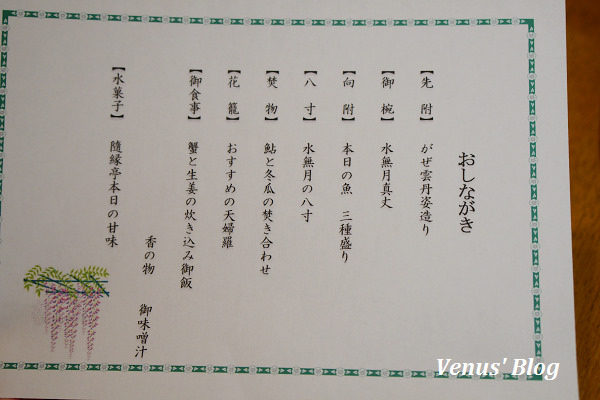 おしながき
【先 附】 がぜ雲丹姿造り
【御 椀】 水無月真丈
【向 附】 本日の魚 三種盛り
【八 寸】 水無月の八寸
【焚 物】 鮎と冬瓜の焚き合わせ
【花 籠】 おすすめの天婦羅
【御食事】 蟹と生姜の炊き込み御飯
香の物 御味噌汁
【水菓子】 隨縁亭本日の甘味
Venus' Blog